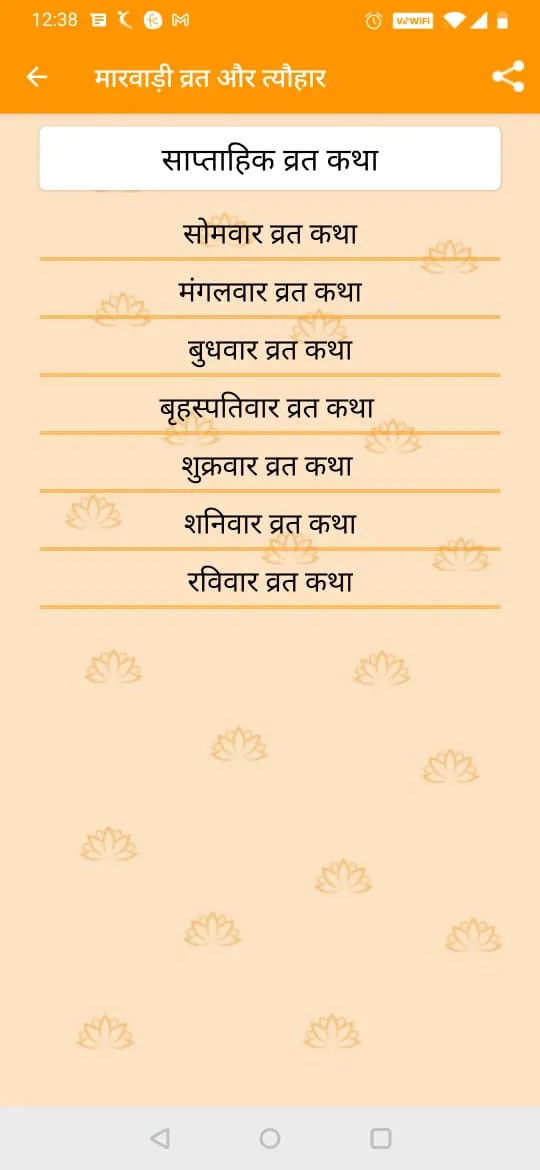 12:38
Vo WiFi
मारवाड़ी व्रत और त्यौहार
साप्ताहिक व्रत कथा
सोमवार व्रत कथा
मंगलवार व्रत कथा
बुधवार व्रत कथा
बृहस्पतिवार व्रत कथा
शुक्रवार व्रत कथा
शनिवार व्रत कथा
रविवार व्रत कथा